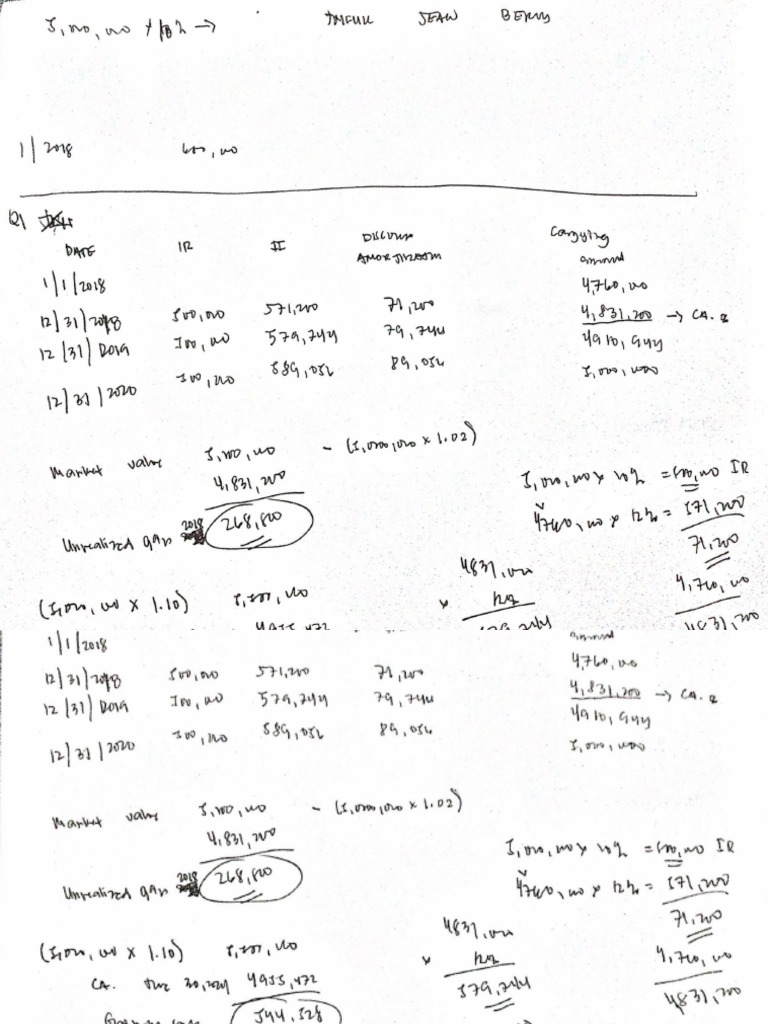 5,000,000 + 10% →
JEAN
1/2018 600,000
Q1
DATE IR II DISCOUNT AMORTIZATION Carrying amount
1/1/2018 4,760,000
12/31/2018 500,000 571,200 71,200 4,831,200 → CA.
12/31/2019 500,000 579,744 79,744 4910,944
12/31/2020 500,000 589,056 89,056 5,000,000
Market value 5,100,000 - (5,000,000 x 1.02)
4,831,200
Unrealized gain 2018 268,800
5,000,000 x 10% = 500,000 IR
4760,000 x 12% = 571,200
71,200
4,760,000
4831,200
(5,000,000 x 1.10) 5,500,000
4955,472
4831,200
x 12%
579,744
1/1/2018
amount
4,760,000
12/31/2018 500,000 571,200 71,200 4,831,200 → CA.
12/31/2019 500,000 579,744 79,744 4910,944
12/31/2020 500,000 589,056 89,056 5,000,000
Market value 5,100,000 - (5,000,000 x 1.02)
4,831,200
Unrealized gain 2018 268,800
5,000,000 x 10% = 500,000 IR
4760,000 x 12% = 571,200
71,200
4,760,000
4831,200
4831,200
x 12%
579,744
(5,000,000 x 1.10) 5,500,000
CA. June 30, 4955,472
544,528